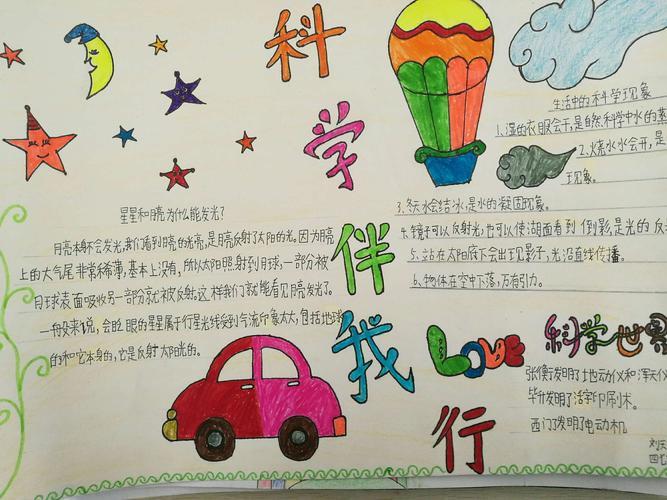 科学伴我行
星星和月亮为什么能发光?
月亮本身不会发光,我们看到月亮的光亮,是月亮反射了太阳的光。因为月亮
上的大气尾非常稀薄,基本上没有,所以太阳照射到月球,一部分被
月球表面吸收另一部分就被反射。这样我们就能看见月亮发光了。
一般来说,会眨眼的星星属于行星光线受到气流印象太大,包括地球
的和它本身的,它是反射太阳光的。
生活中的科学现象
1.湿的衣服会干,是自然科学中水的蒸
2.烧水水会开,是
现象。
3.冬天水会结冰,是水的凝固现象。
4.镜子可以反射光,也可以使湖面看到倒影,是光的反
5.站在太阳底下会出现影子,光沿直线传播。
6.物体在空中下落,万有引力。
Love 科学世界
张衡发明了地动仪和浑天仪
毕升发明了活字印刷术。
西门子发明了电动机
刘天
四七